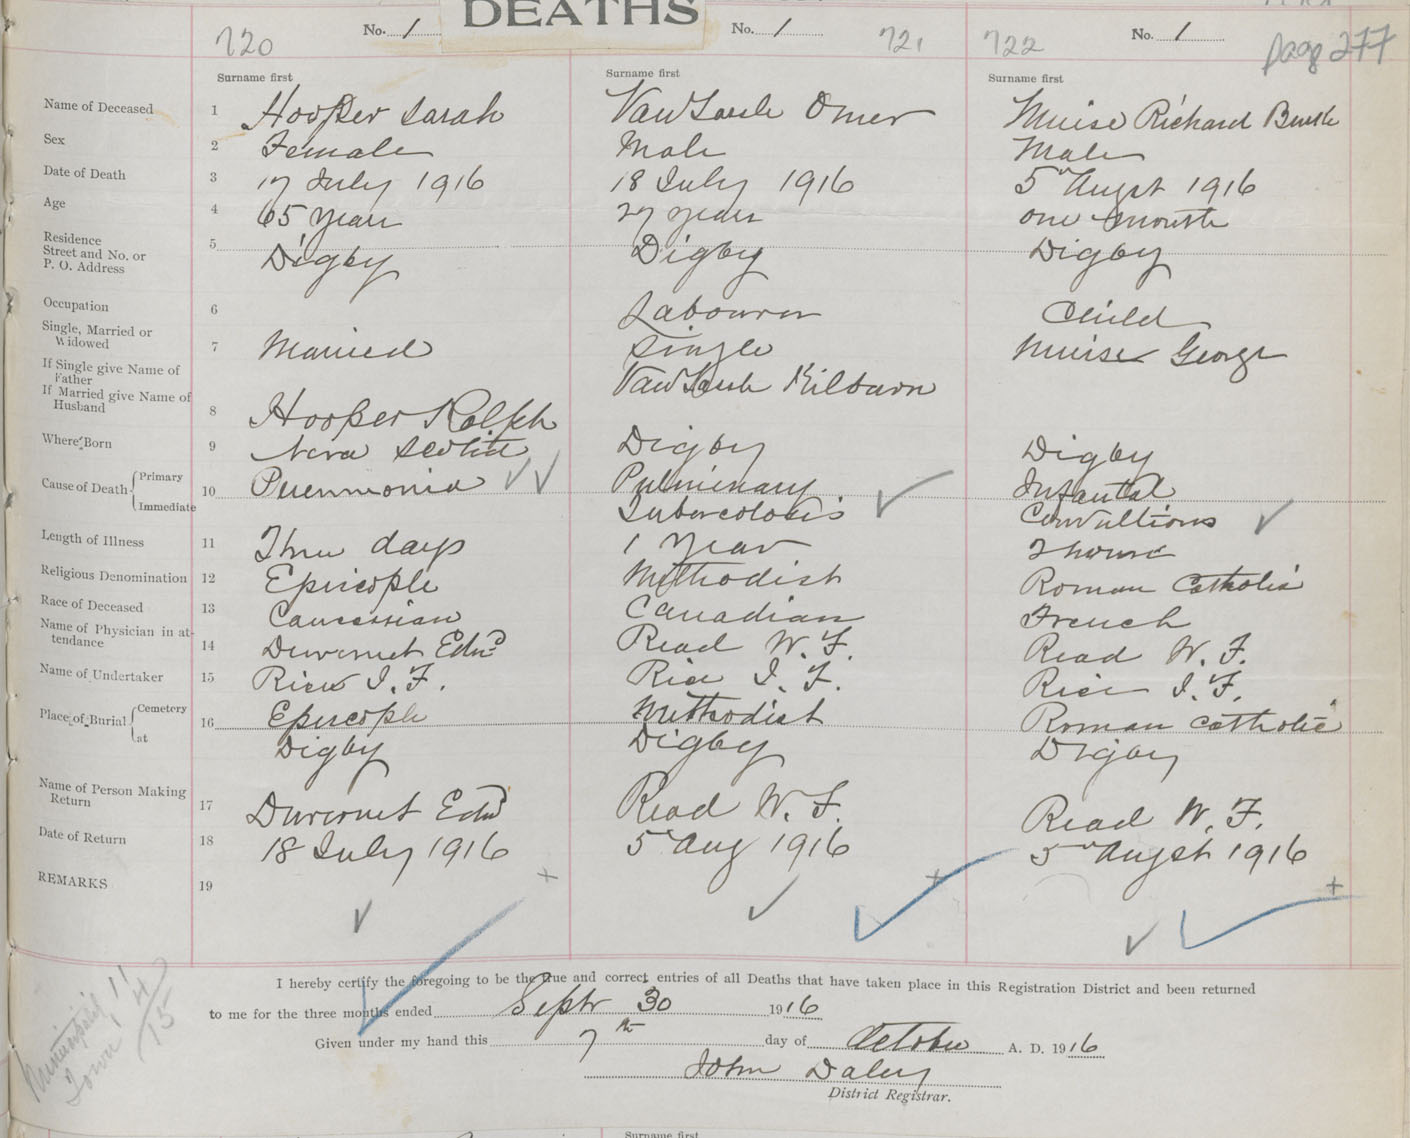 DEATHS
720 No. 1
No. 1 721
722 No. 1 page 277
Surname first Surname first Surname first
Name of Deceased 1 Hooper Sarah Omer Muise Richard
Sex 2 Female Male Male
Date of Death 3 17 July 1916 18 July 1916 5th Augst 1916
Age 4 65 years 27 years one month
Residence
Street and No. or
P. O. Address
5 Digby Digby Digby
Occupation 6 Labourer Child
Single, Married or
Widowed
7 Married Single Muise George
If Single give Name of
Father
If Married give Name of
Husband
8 Hooper Ralph Kilburn
Where Born 9 Nova Scotia Digby Digby
Cause of Death { Primary
Immediate
10 Pneumonia Pulminary Infantal
Tubercolosis Convultions
Length of Illness 11 Three days 1 year 2 hours
Religious Denomination 12 Episcople Methodist Roman Catholic
Race of Deceased 13 Caucasian Canadian French
Name of Physician in at-
tendance
14 Duvernet Edwd Read W. F. Read W. F.
Name of Undertaker 15 Rice I. F. Rice I. F. Rice I. F.
Place of Burial { Cemetery
at
16 Episcople Methodist Roman Catholic
Digby Digby Digby
Name of Person Making
Return
17 Duvernet Edwd Read W. F. Read W. F.
Date of Return 18 18 July 1916 5 Aug 1916 5th Augst 1916
REMARKS 19
I hereby certify the foregoing to be the true and correct entries of all Deaths that have taken place in this Registration District and been returned
to me for the three months ended Septr 30 1916
Given under my hand this 7th day of October A. D. 1916
John Daley
District Registrar.
Municipal 11
Town 4
15
Surname first